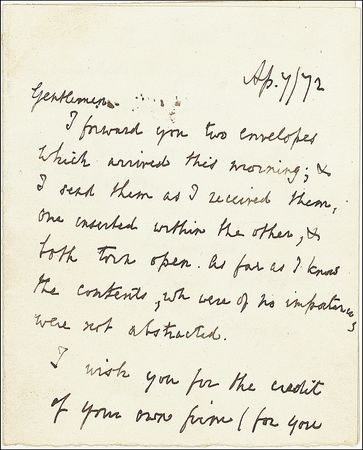 Ap. 7/72
Gentlemen
I forward you two envelopes
which arrived this morning; &
I send them as I received them,
one inserted within the other, &
both torn open. As far as I know
the contents, wh were of no importance,
were not abstracted.
I wish you for the credit
of your own firm (for you